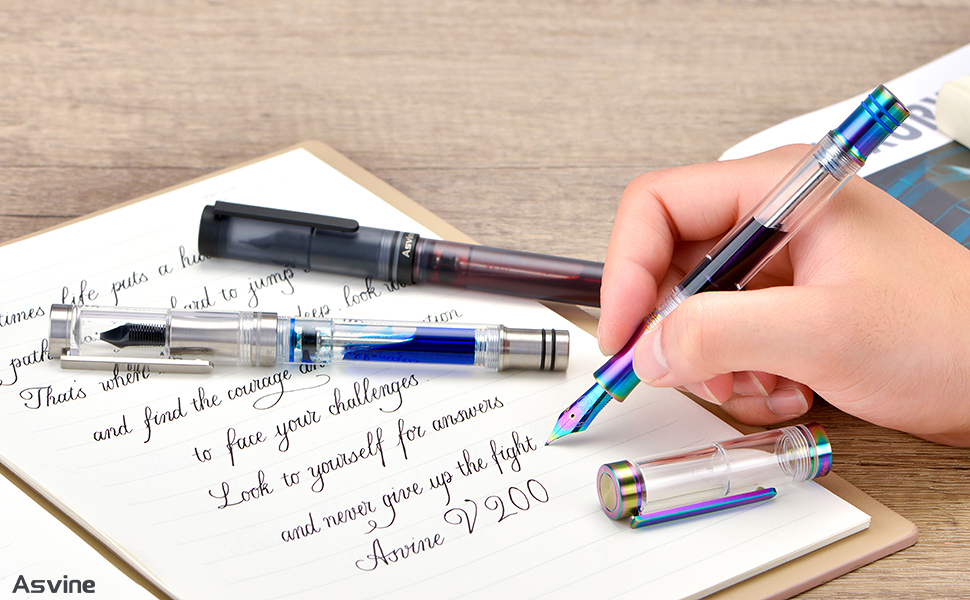 times life puts a
hard to jump
deep look
path
That's when
and find the courage
to face your challenges
Look to yourself for answers
and never give up the fight
Asvine V200
Asvine